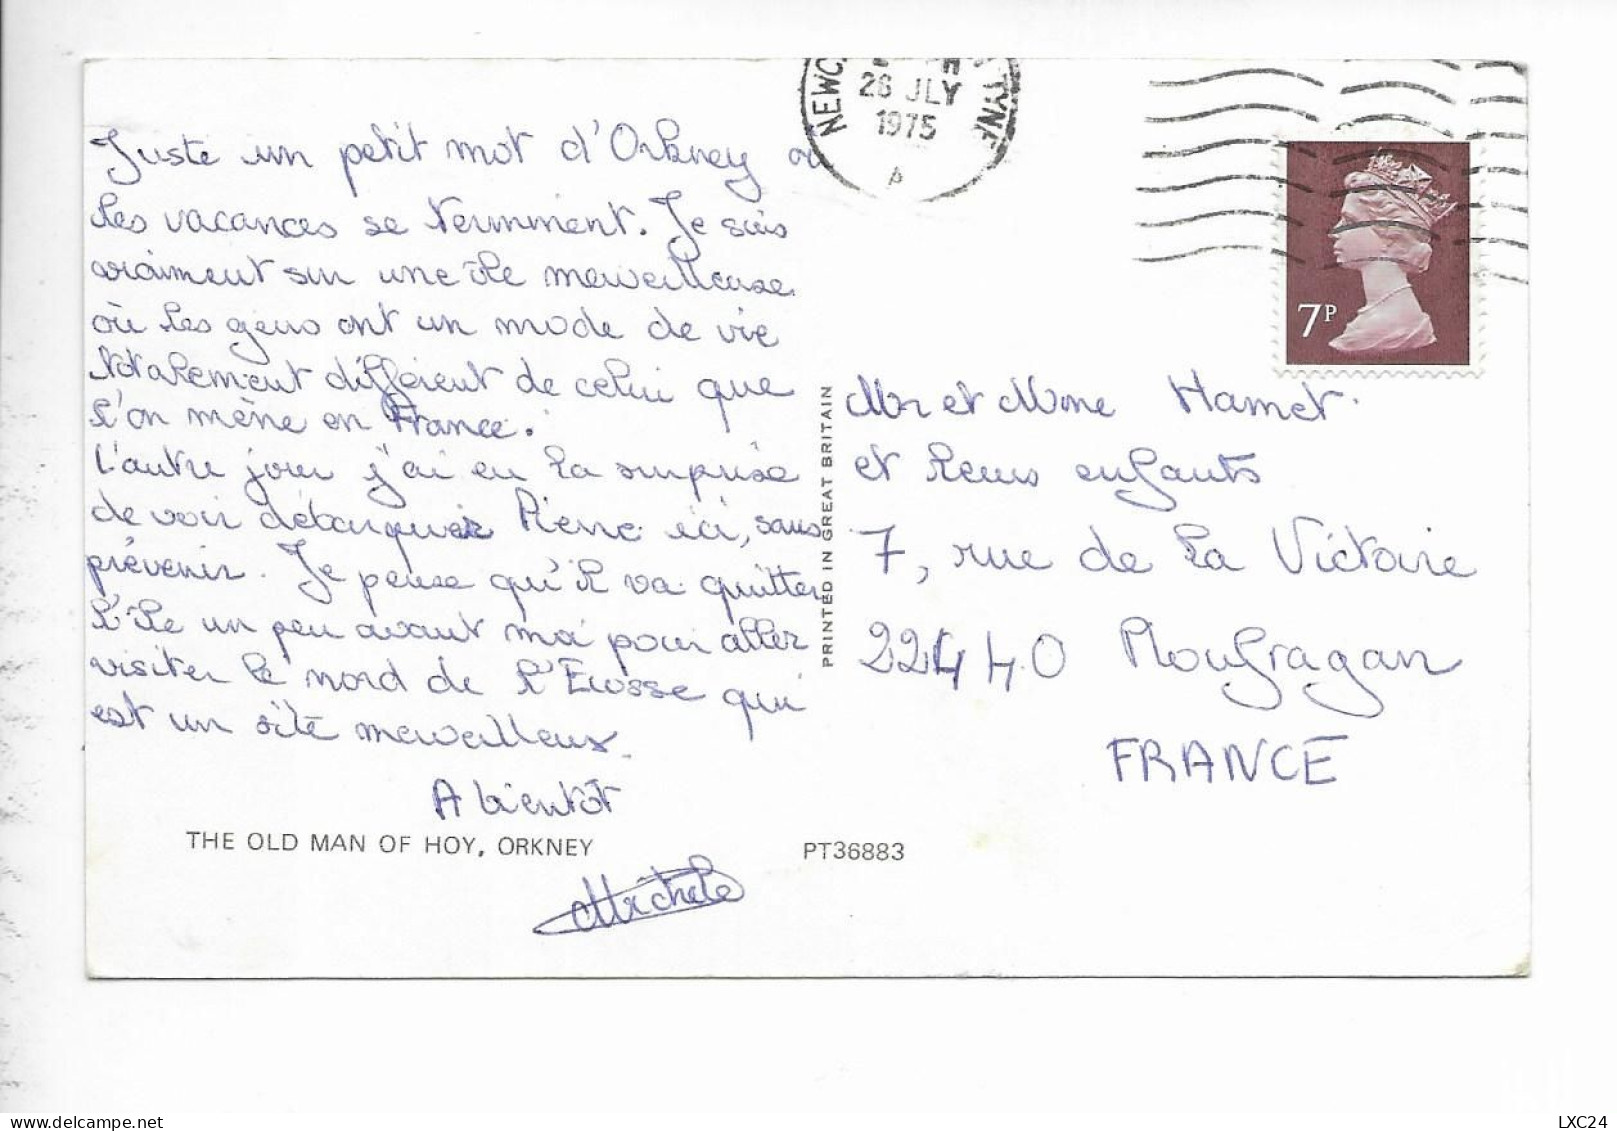 NEWC TYNE
28 JLY
1975
A
7P
Juste un petit mot d'Orkney où
les vacances se terminent. Je suis
vraiment sur une île merveilleuse
où les gens ont un mode de vie
totalement différent de celui que
l'on mène en France.
L'autre jour j'ai eu la surprise
de voir débarquer Pierre ici, sans
prévenir. Je pense qu'il va quitter
l'île un peu avant moi pour aller
visiter le nord de l'Ecosse qui
est un site merveilleux.
A bientôt
Michele
THE OLD MAN OF HOY, ORKNEY
PT36883
PRINTED IN GREAT BRITAIN
Mr et Mme Hamet
et leurs enfants
7, rue de la Victoire
22440 Ploufragan
FRANCE
LXC24